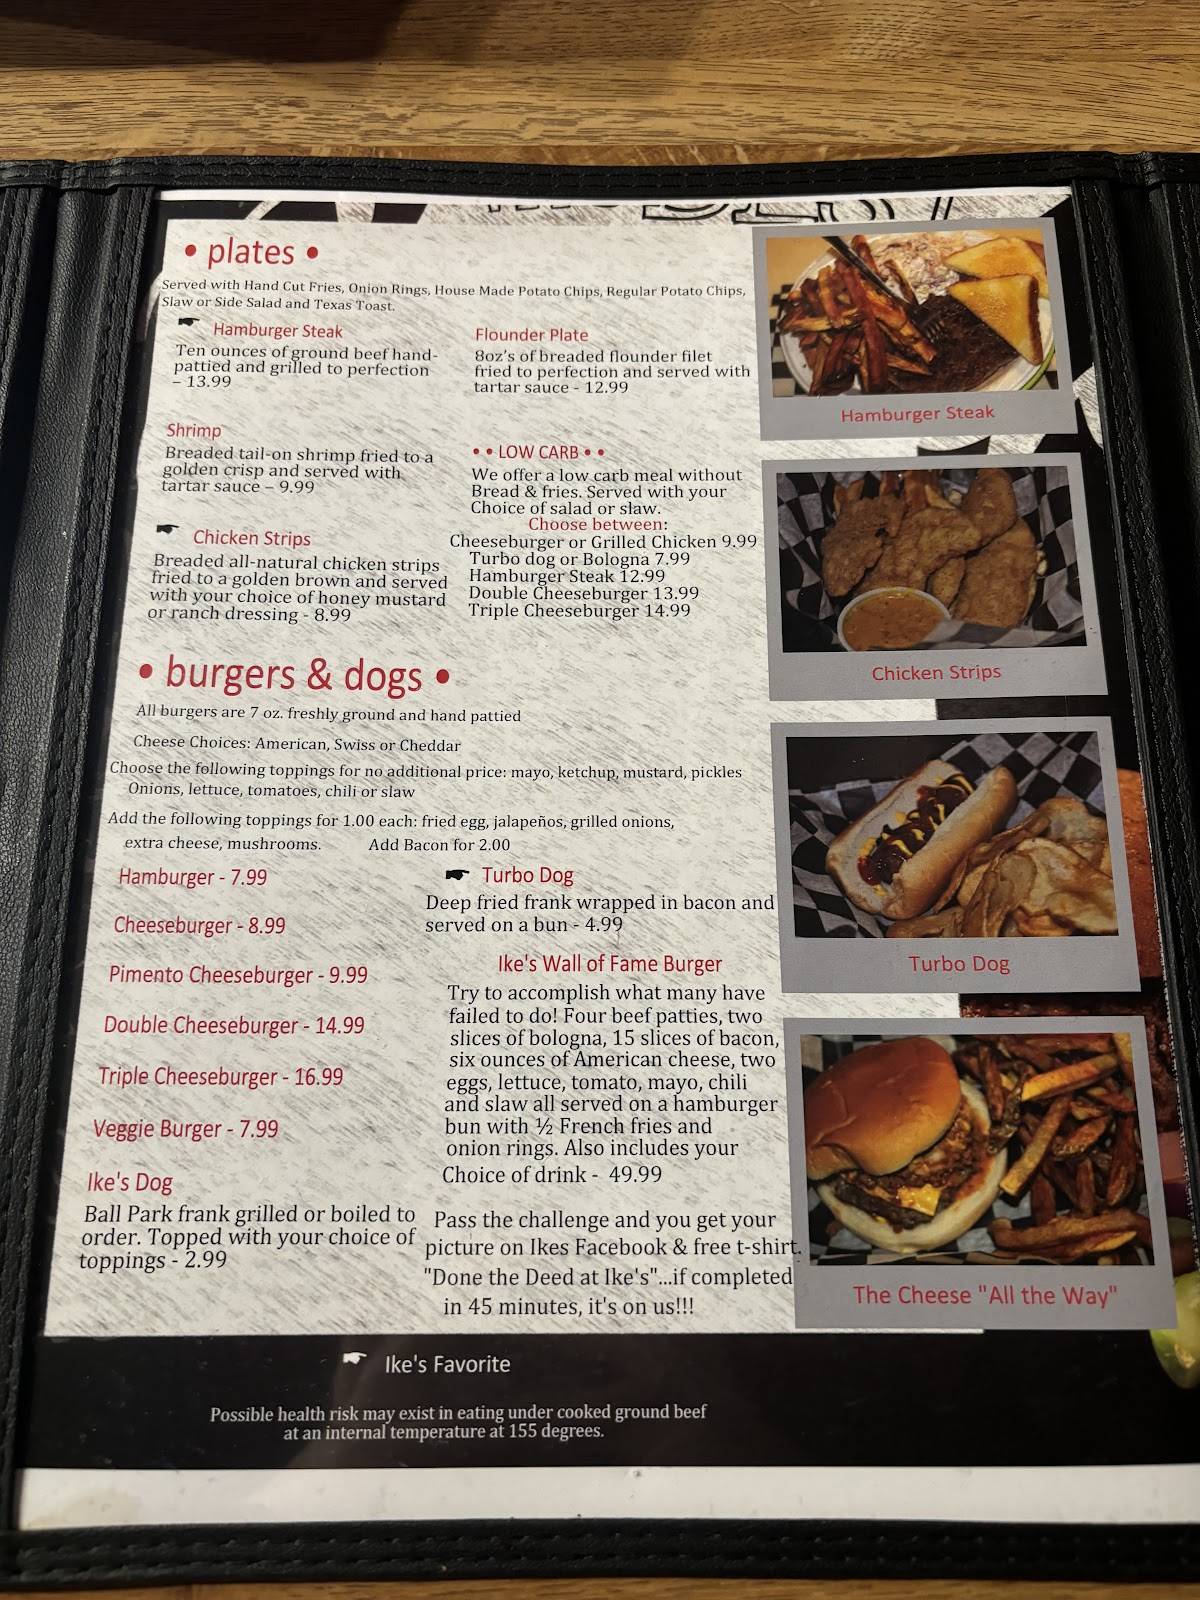 • plates •
Served with Hand Cut Fries, Onion Rings, House Made Potato Chips, Regular Potato Chips,
Slaw or Side Salad and Texas Toast.
Hamburger Steak
Ten ounces of ground beef hand-
pattied and grilled to perfection
– 13.99
Shrimp
Breaded tail-on shrimp fried to a
golden crisp and served with
tartar sauce – 9.99
Chicken Strips
Breaded all-natural chicken strips
fried to a golden brown and served
with your choice of honey mustard
or ranch dressing - 8.99
Flounder Plate
8oz's of breaded flounder filet
fried to perfection and served with
tartar sauce - 12.99
• • LOW CARB • •
We offer a low carb meal without
Bread & fries. Served with your
Choice of salad or slaw.
Choose between:
Cheeseburger or Grilled Chicken 9.99
Turbo dog or Bologna 7.99
Hamburger Steak 12.99
Double Cheeseburger 13.99
Triple Cheeseburger 14.99
• burgers & dogs •
All burgers are 7 oz. freshly ground and hand pattied
Cheese Choices: American, Swiss or Cheddar
Choose the following toppings for no additional price: mayo, ketchup, mustard, pickles
Onions, lettuce, tomatoes, chili or slaw
Add the following toppings for 1.00 each: fried egg, jalapeños, grilled onions,
extra cheese, mushrooms. Add Bacon for 2.00
Hamburger - 7.99
Cheeseburger - 8.99
Pimento Cheeseburger - 9.99
Double Cheeseburger - 14.99
Triple Cheeseburger - 16.99
Veggie Burger - 7.99
Ike's Dog
Ball Park frank grilled or boiled to
order. Topped with your choice of
toppings - 2.99
Turbo Dog
Deep fried frank wrapped in bacon and
served on a bun - 4.99
Ike's Wall of Fame Burger
Try to accomplish what many have
failed to do! Four beef patties, two
slices of bologna, 15 slices of bacon,
six ounces of American cheese, two
eggs, lettuce, tomato, mayo, chili
and slaw all served on a hamburger
bun with ½ French fries and
onion rings. Also includes your
Choice of drink - 49.99
Pass the challenge and you get your
picture on Ikes Facebook & free t-shirt.
"Done the Deed at Ike's"...if completed
in 45 minutes, it's on us!!!
Hamburger Steak
Chicken Strips
Turbo Dog
The Cheese "All the Way"
Ike's Favorite
Possible health risk may exist in eating under cooked ground beef
at an internal temperature at 155 degrees.